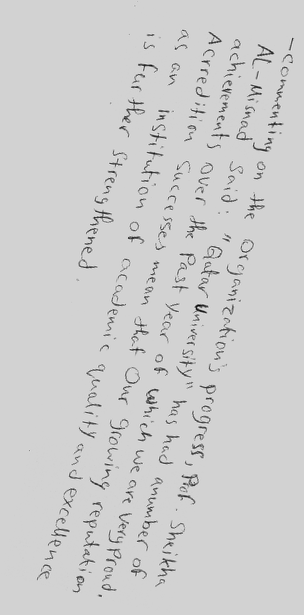 -Commenting on the Organization's progress, Prof. Sheikha
AL-Misnad said: "Qatar University" has had anumber of
achievements over the Past year of which we are very proud.
Accredition successes mean that Our growing reputation
as an institution of academic quality and excellence
is further strengthened.